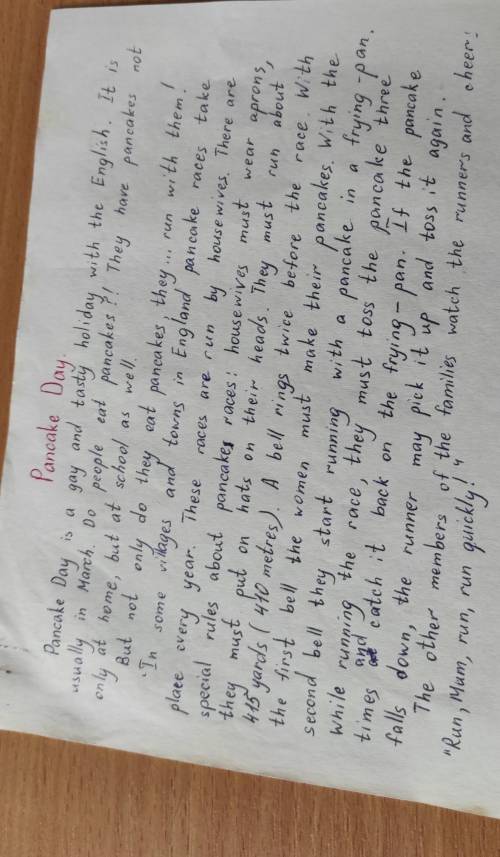 Pancake Day.
Pancake Day is a gay and tasty holiday with the English. It is
usually in March. Do people eat pancakes?! They have pancakes not
only at home, but at school as well.
But not only do they eat pancakes, they... run with them!
In some villages and towns in England pancake races take
place every year. These races are run by housewives. There are
special rules about pancakes races: housewives must wear aprons,
they must put on hats on their heads. They must run about
415 yards (410 metres). A bell rings twice before the race. With
the first bell the women must make their pancakes. With the
second bell they start running with a pancake in a frying-pan.
While running the race, they must toss the pancake three
times and catch it back on the frying-pan. If the pancake
falls down, the runner may pick it up and toss it again.
The other members of the families watch the runners and cheer:
"Run, Mum, run, run quickly!"